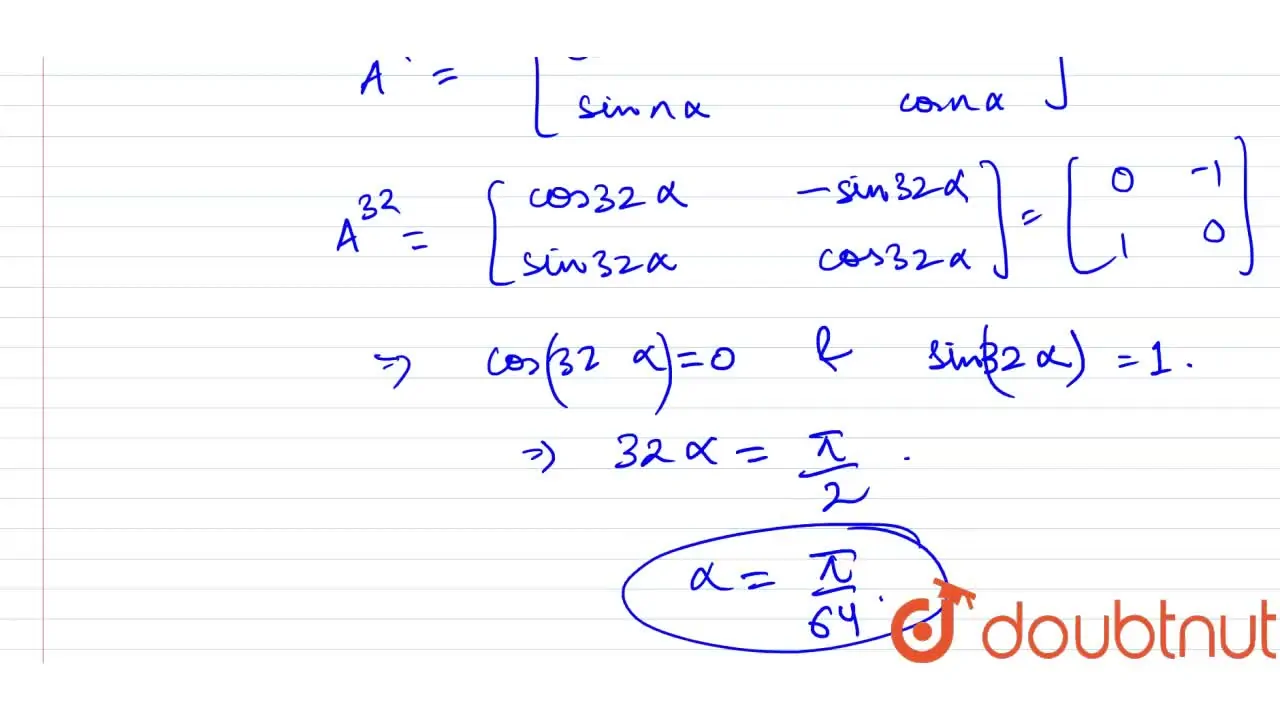 A = [ sin nα cos nα ]
A^32 = [ cos32α -sin32α = [ 0 -1
sin32α cos32α ] 1 0 ]
⇒ cos(32 α)=0 & sin(32 α) = 1.
⇒ 32α = π/2 .
α = π/64.
doubtnut